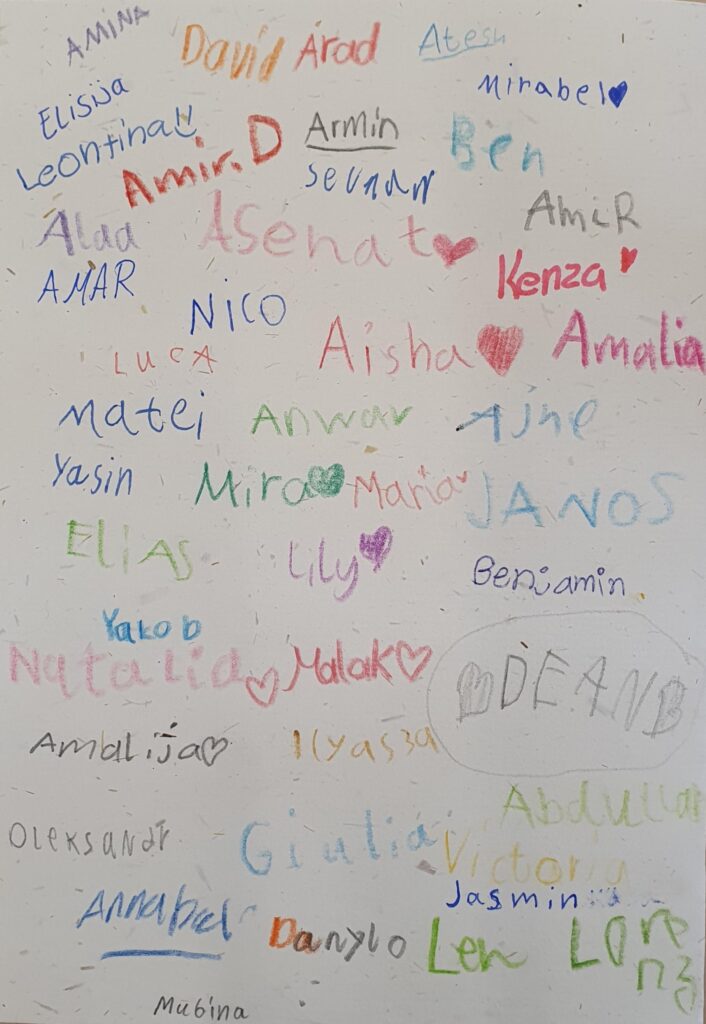 AMINA
David Arad Atesh
Mirabel
Elisija
Leontina
Armin
Ben
Amir.D
Alaa
Asenat
AmiR
AMAR
Kenza
NICO
LUCA
Aisha
Amalia
Matei
Anwar
Ajne
Yasin
Mira
Maria
JANOS
EliAS
Lily
Benjamin
Yakob
Natalia
Malak
DEAN B
Amalija
Ilyas3a
Abdullah
Oleksandr
Giulia
Victoria
Annabel
Jasmin
Danylo
Len
LOre
nz
Mubina